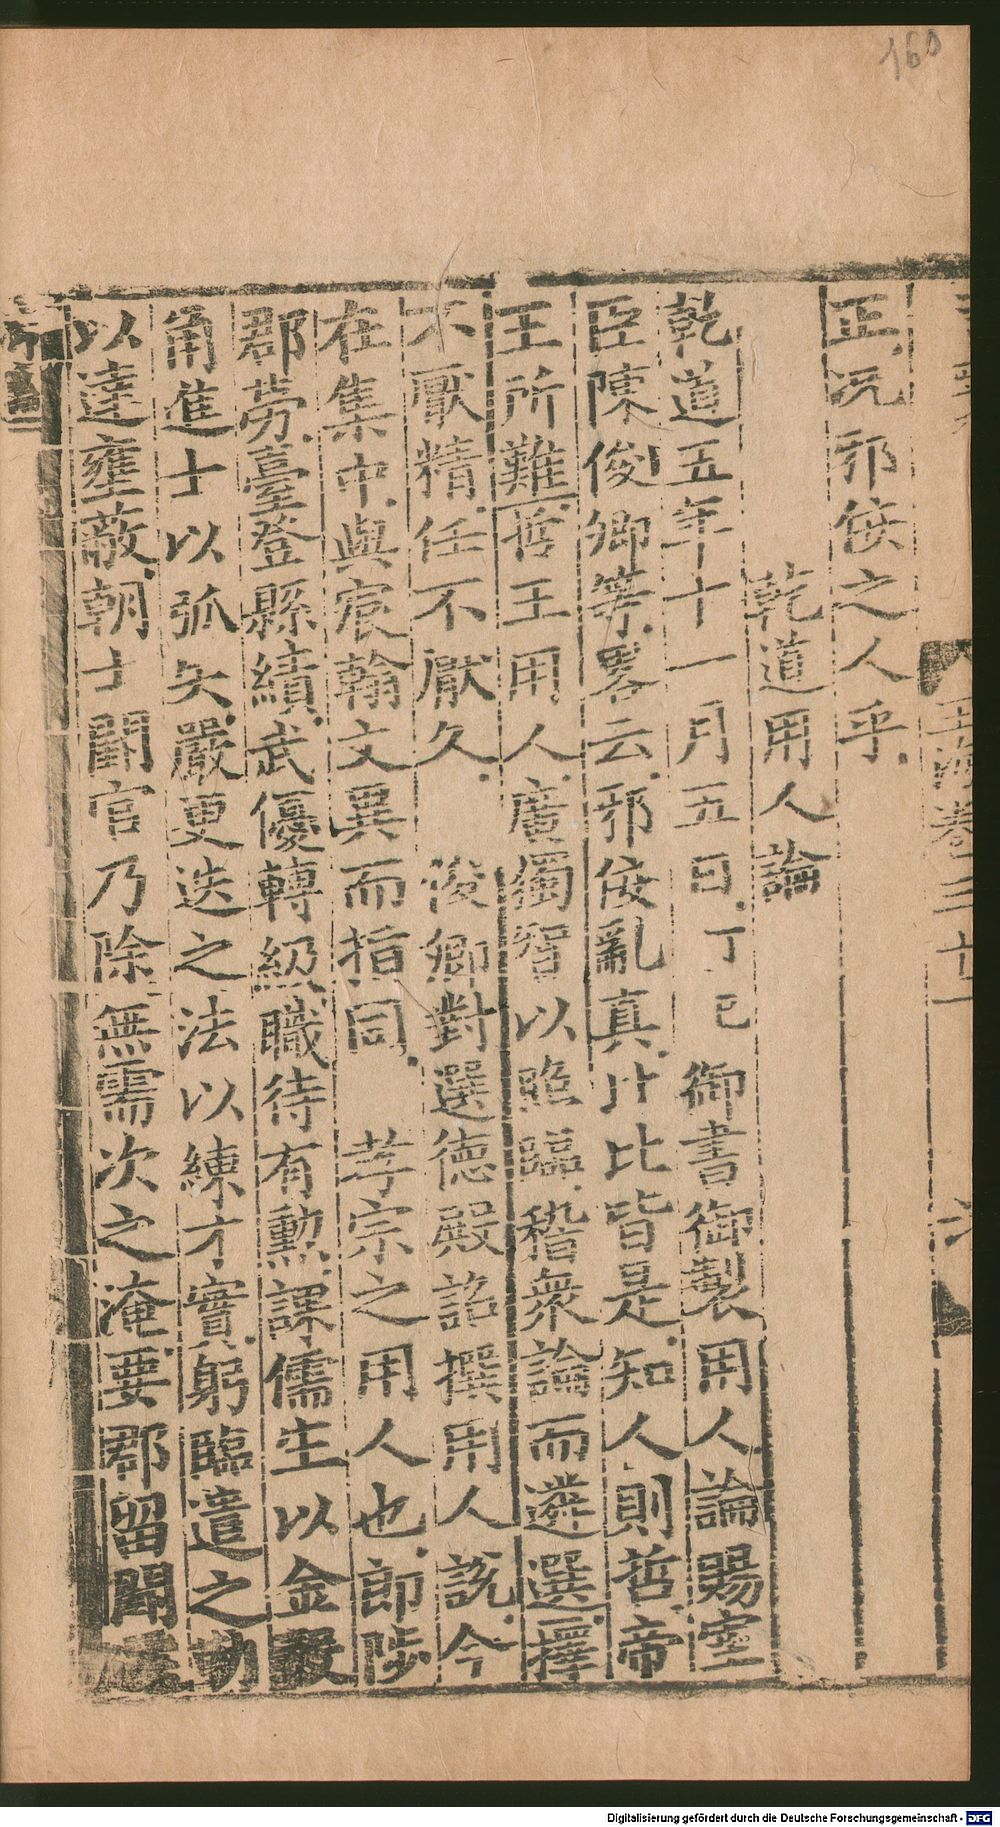 160
玉海卷三十一
六
正況邪佞之人乎
乾道用人論
乾道五年十一月五日丁巳 御書御製用人論賜宰
臣陳俊卿等畧云邪佞亂真比比皆是知人則哲帝
王所難哲王用人廣獨智以照臨稽衆論而遴選擇
不厭精任不厭久 俊卿對選德殿詔撰用人說今
在集中與宸翰文異而指同 孝宗之用人也郎陟
郡勞臺登縣績武優轉級職待有勲課儒生以金鼓
角進士以弧矢嚴更迭之法以練才實躬臨遣之
以達壅蔽朝士闕官乃除無需次之淹要郡留闕
Digitalisierung gefördert durch die Deutsche Forschungsgemeinschaft - DFG